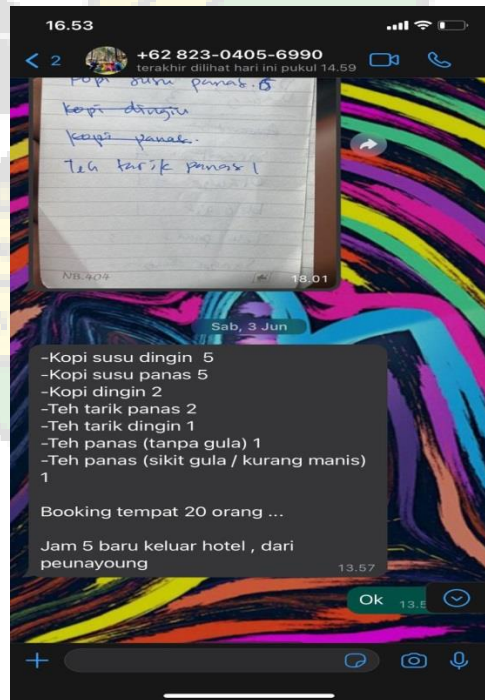 16.53
2
+62 823-0405-6990
terakhir dilihat hari ini pukul 14.59
kopi susu panas. 5
kopi dingin
kopi panas.
Teh tarik panas 1
NB.404
18.01
Sab, 3 Jun
-Kopi susu dingin 5
-Kopi susu panas 5
-Kopi dingin 2
-Teh tarik panas 2
-Teh tarik dingin 1
-Teh panas (tanpa gula) 1
-Teh panas (sikit gula / kurang manis)
1
Booking tempat 20 orang ...
Jam 5 baru keluar hotel , dari
peunayoung
13.57
Ok